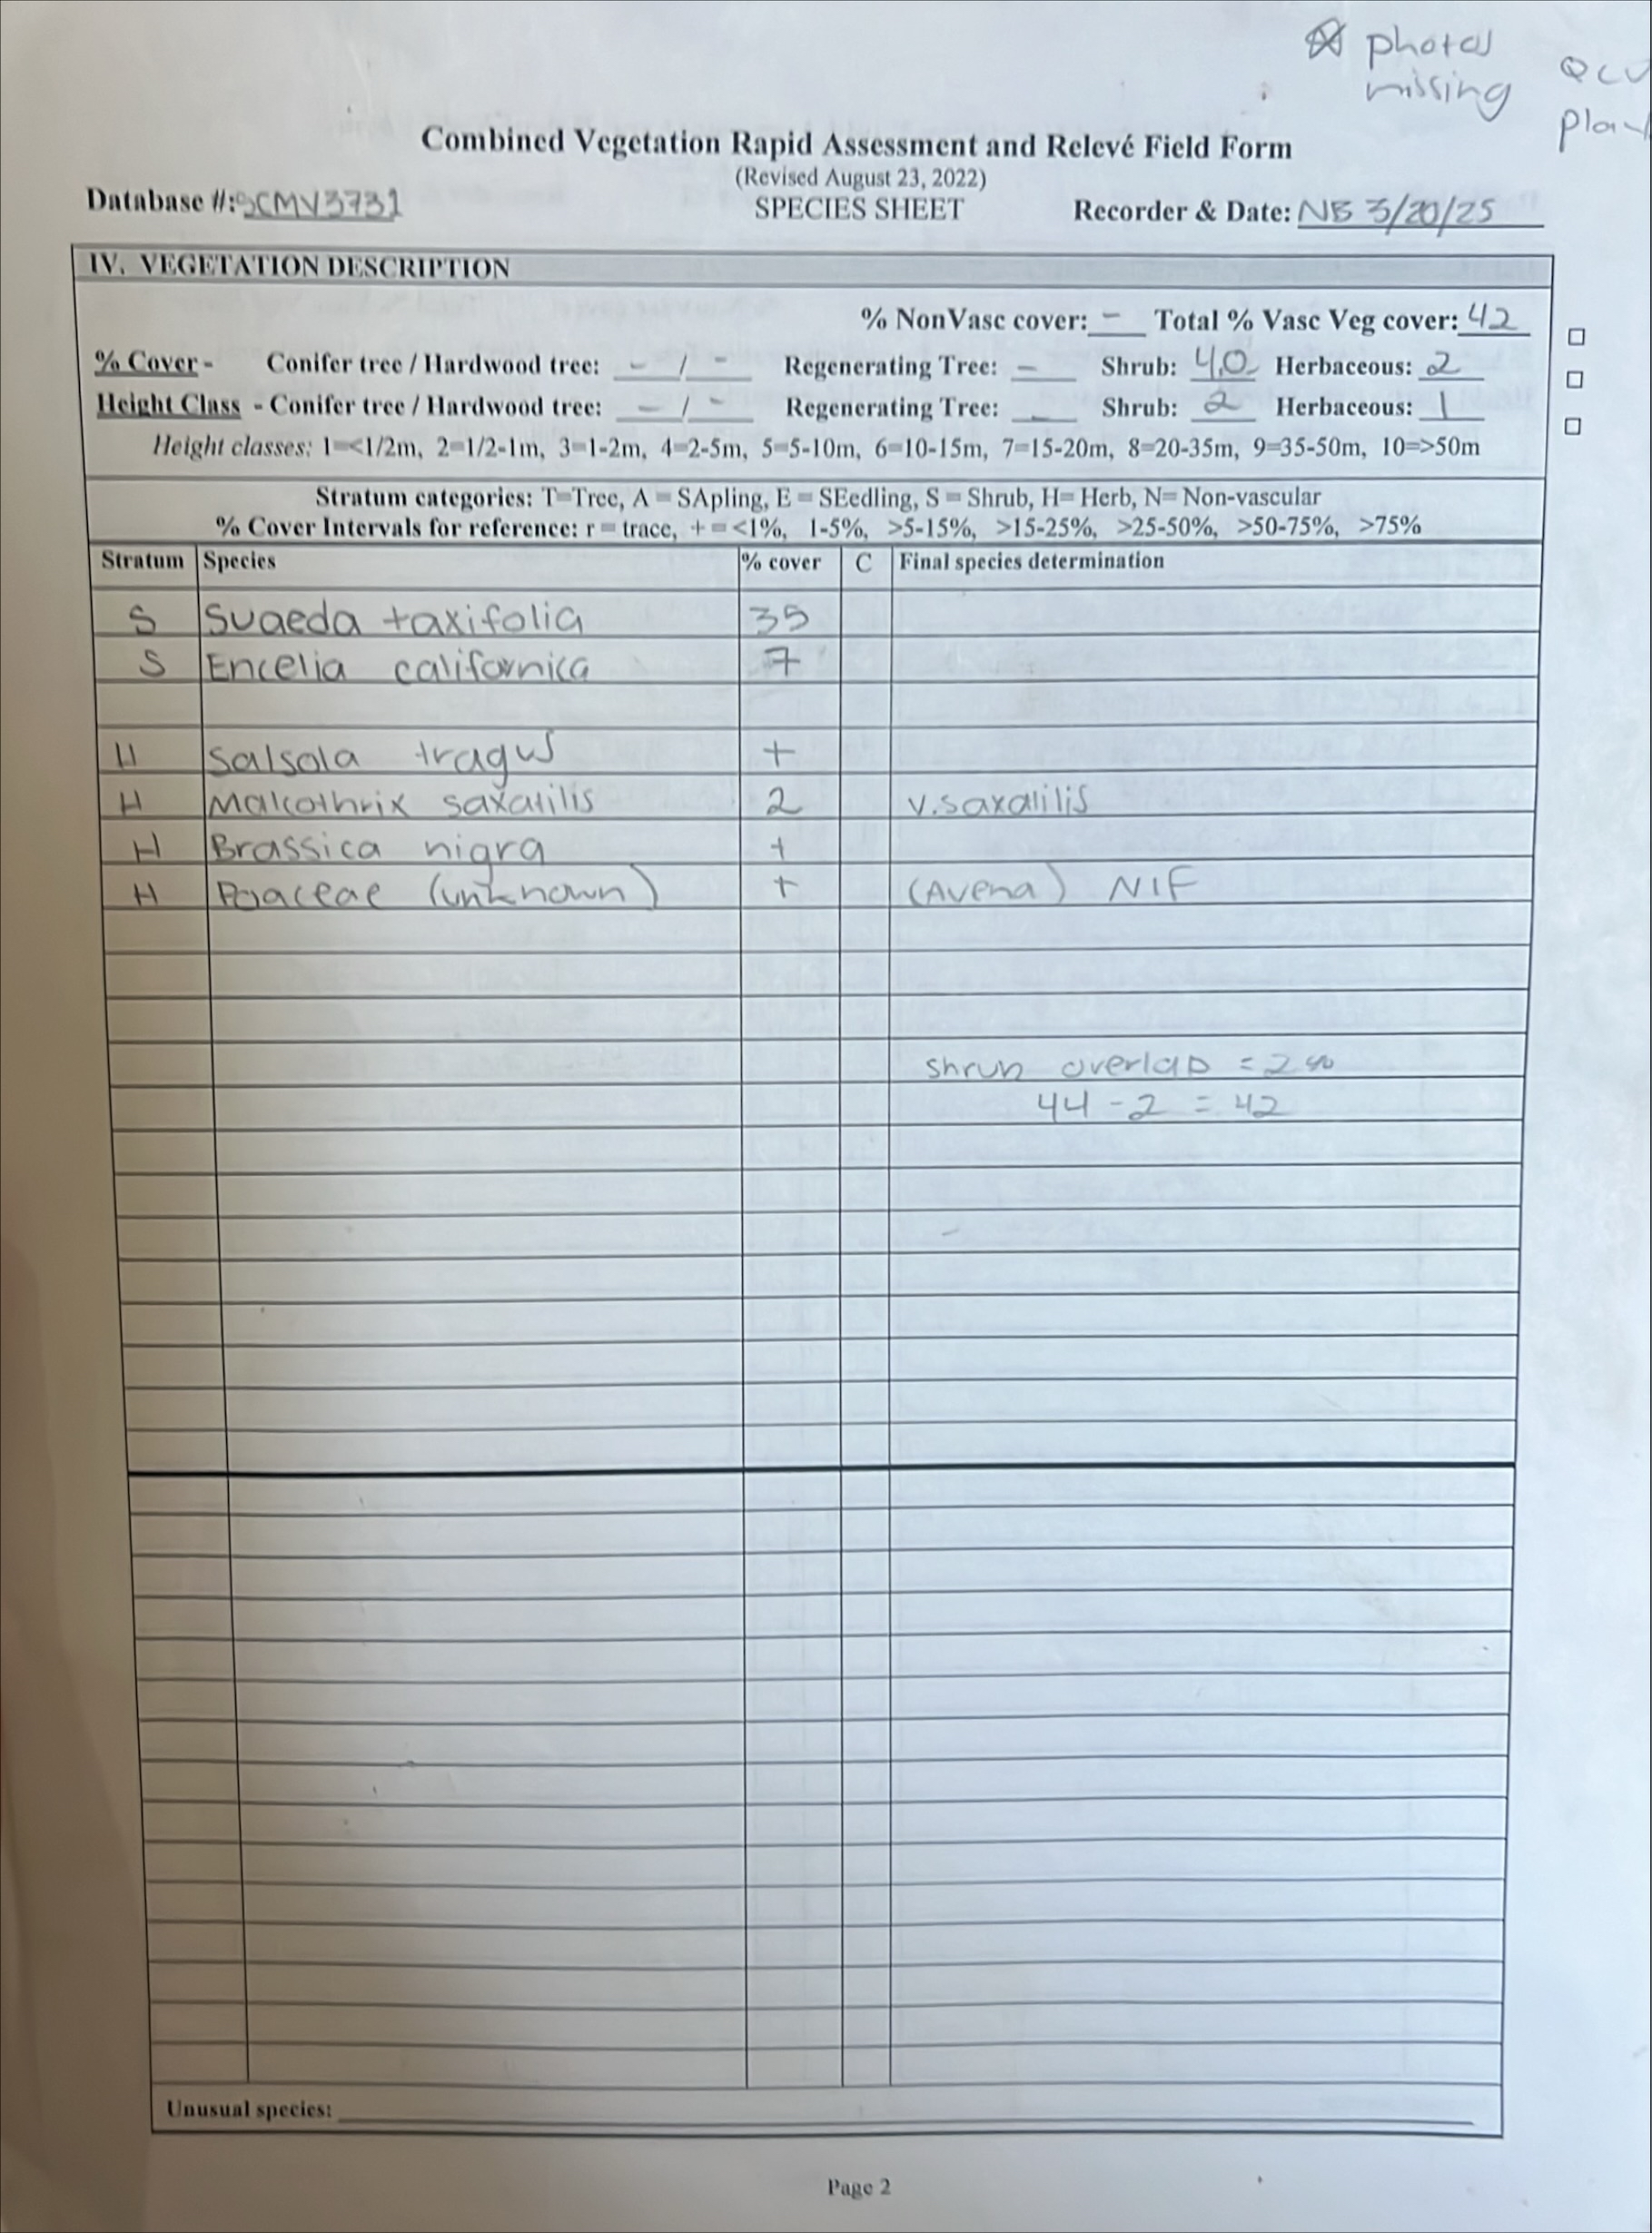 photos
missing
Combined Vegetation Rapid Assessment and Relevé Field Form
(Revised August 23, 2022)
Database #: SCMV3731 SPECIES SHEET Recorder & Date: NB 3/20/25
IV. VEGETATION DESCRIPTION
% NonVasc cover: - Total % Vasc Veg cover: 42
% Cover - Conifer tree / Hardwood tree: - / - Regenerating Tree: - Shrub: 40 Herbaceous: 2
Height Class - Conifer tree / Hardwood tree: - / - Regenerating Tree: - Shrub: 2 Herbaceous: 1
Height classes: 1=<1/2m, 2=1/2-1m, 3=1-2m, 4=2-5m, 5=5-10m, 6=10-15m, 7=15-20m, 8=20-35m, 9=35-50m, 10=>50m
Stratum categories: T=Tree, A = SApling, E = SEedling, S = Shrub, H= Herb, N= Non-vascular
% Cover Intervals for reference: r = trace, + = <1%, 1-5%, >5-15%, >15-25%, >25-50%, >50-75%, >75%
Stratum Species % cover C Final species determination
S Suaeda taxifolia 35
S Encelia californica 7
H Salsola tragus +
H Malcothrix saxatilis 2 v. saxatilis
H Brassica nigra +
H Poaceae (unknown) + (Avena) NIF
shrub overlap = 2%
44 - 2 = 42
Unusual species:
Page 2